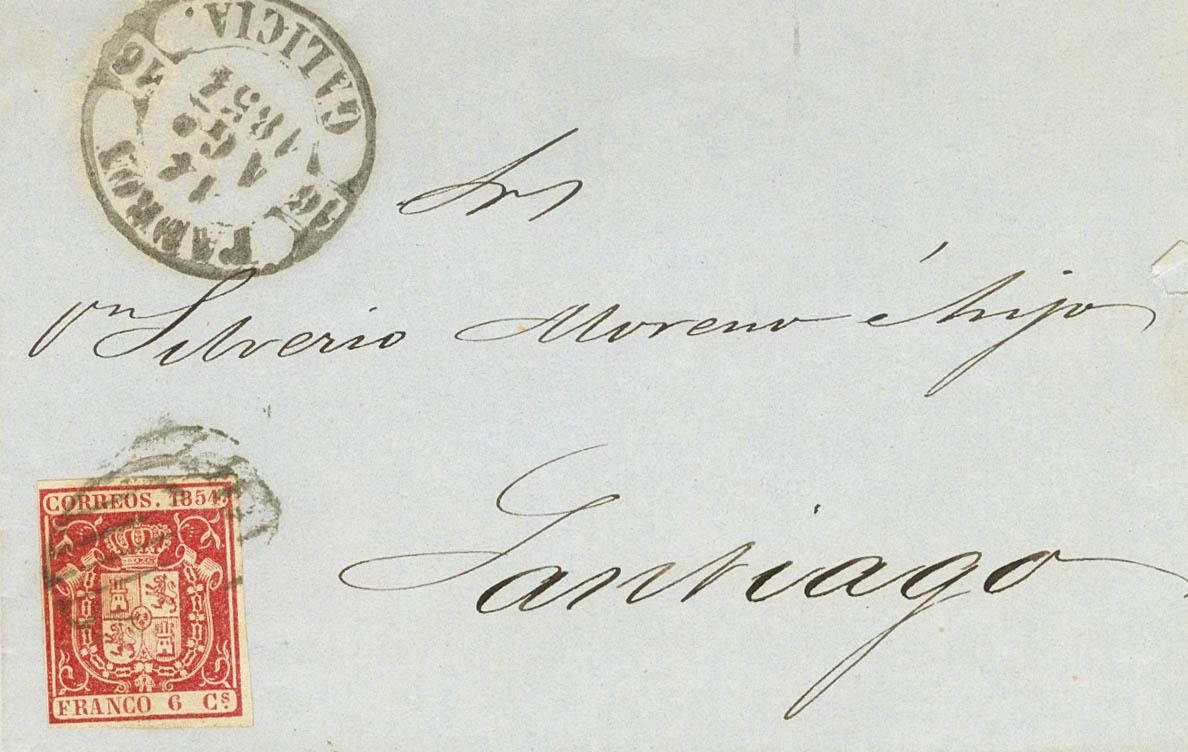 GALICIA.
26 26
14
AGO
1854
PADRON
Srs
Dn Silverio Moreno é hijo
Santiago
CORREOS. 1854.
FRANCO 6 Cs.